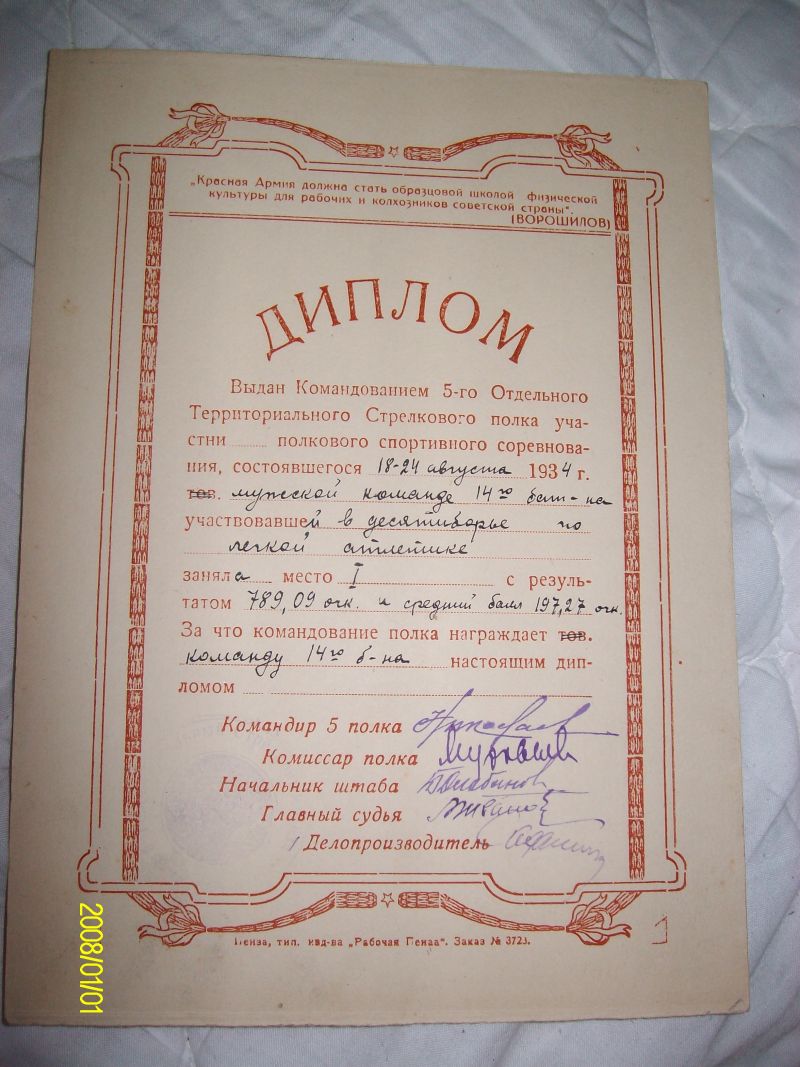 „Красная Армия должна стать образцовой школой физической
культуры для рабочих и колхозников советской страны".
(ВОРОШИЛОВ)
ДИПЛОМ
Выдан Командованием 5-го Отдельного
Территориального Стрелкового полка уча-
стни полкового спортивного соревнова-
ния, состоявшегося 18-24 августа 1934 г.
тов. мужской команде 14го бат-на
участвовавшей в десятиборье по
легкой атлетике
заняла место I с резуль-
татом 789,09 очк. и средний балл 197,27 очк.
За что командование полка награждает тов.
команду 14го б-на настоящим дип-
ломом
Командир 5 полка
Комиссар полка
Начальник штаба
Главный судья
Делопроизводитель
Пенза, тип. изд-ва „Рабочая Пенза". Заказ № 3723.
2008/01/01